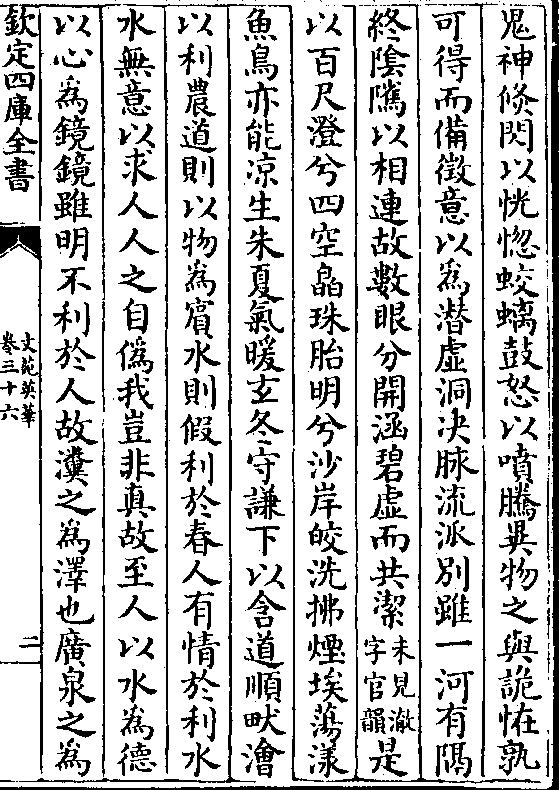 鬼神倐閃以恍惚蛟螭鼓怒以噴騰異物之與詭恠孰
可得而備徵意以為潜虚洞决脉流派别雖一河有隅
終陰隲以相連故數眼分開涵碧虚而共潔未見澈字官韻是
以百尺澄兮四空皛珠胎明兮沙岸皎洗拂煙埃蕩漾
魚鳥亦能凉生朱夏氣暖玄冬守謙下以含道順畎澮
以利農道則以物為賔水則假利於春人有情於利水
水無意以求人人之自僞我豈非真故至人以水為德
以心為鏡鏡雖明不利於人故瀵之為澤也廣泉之為
欽定四庫全書
文苑英華
卷三十六
二